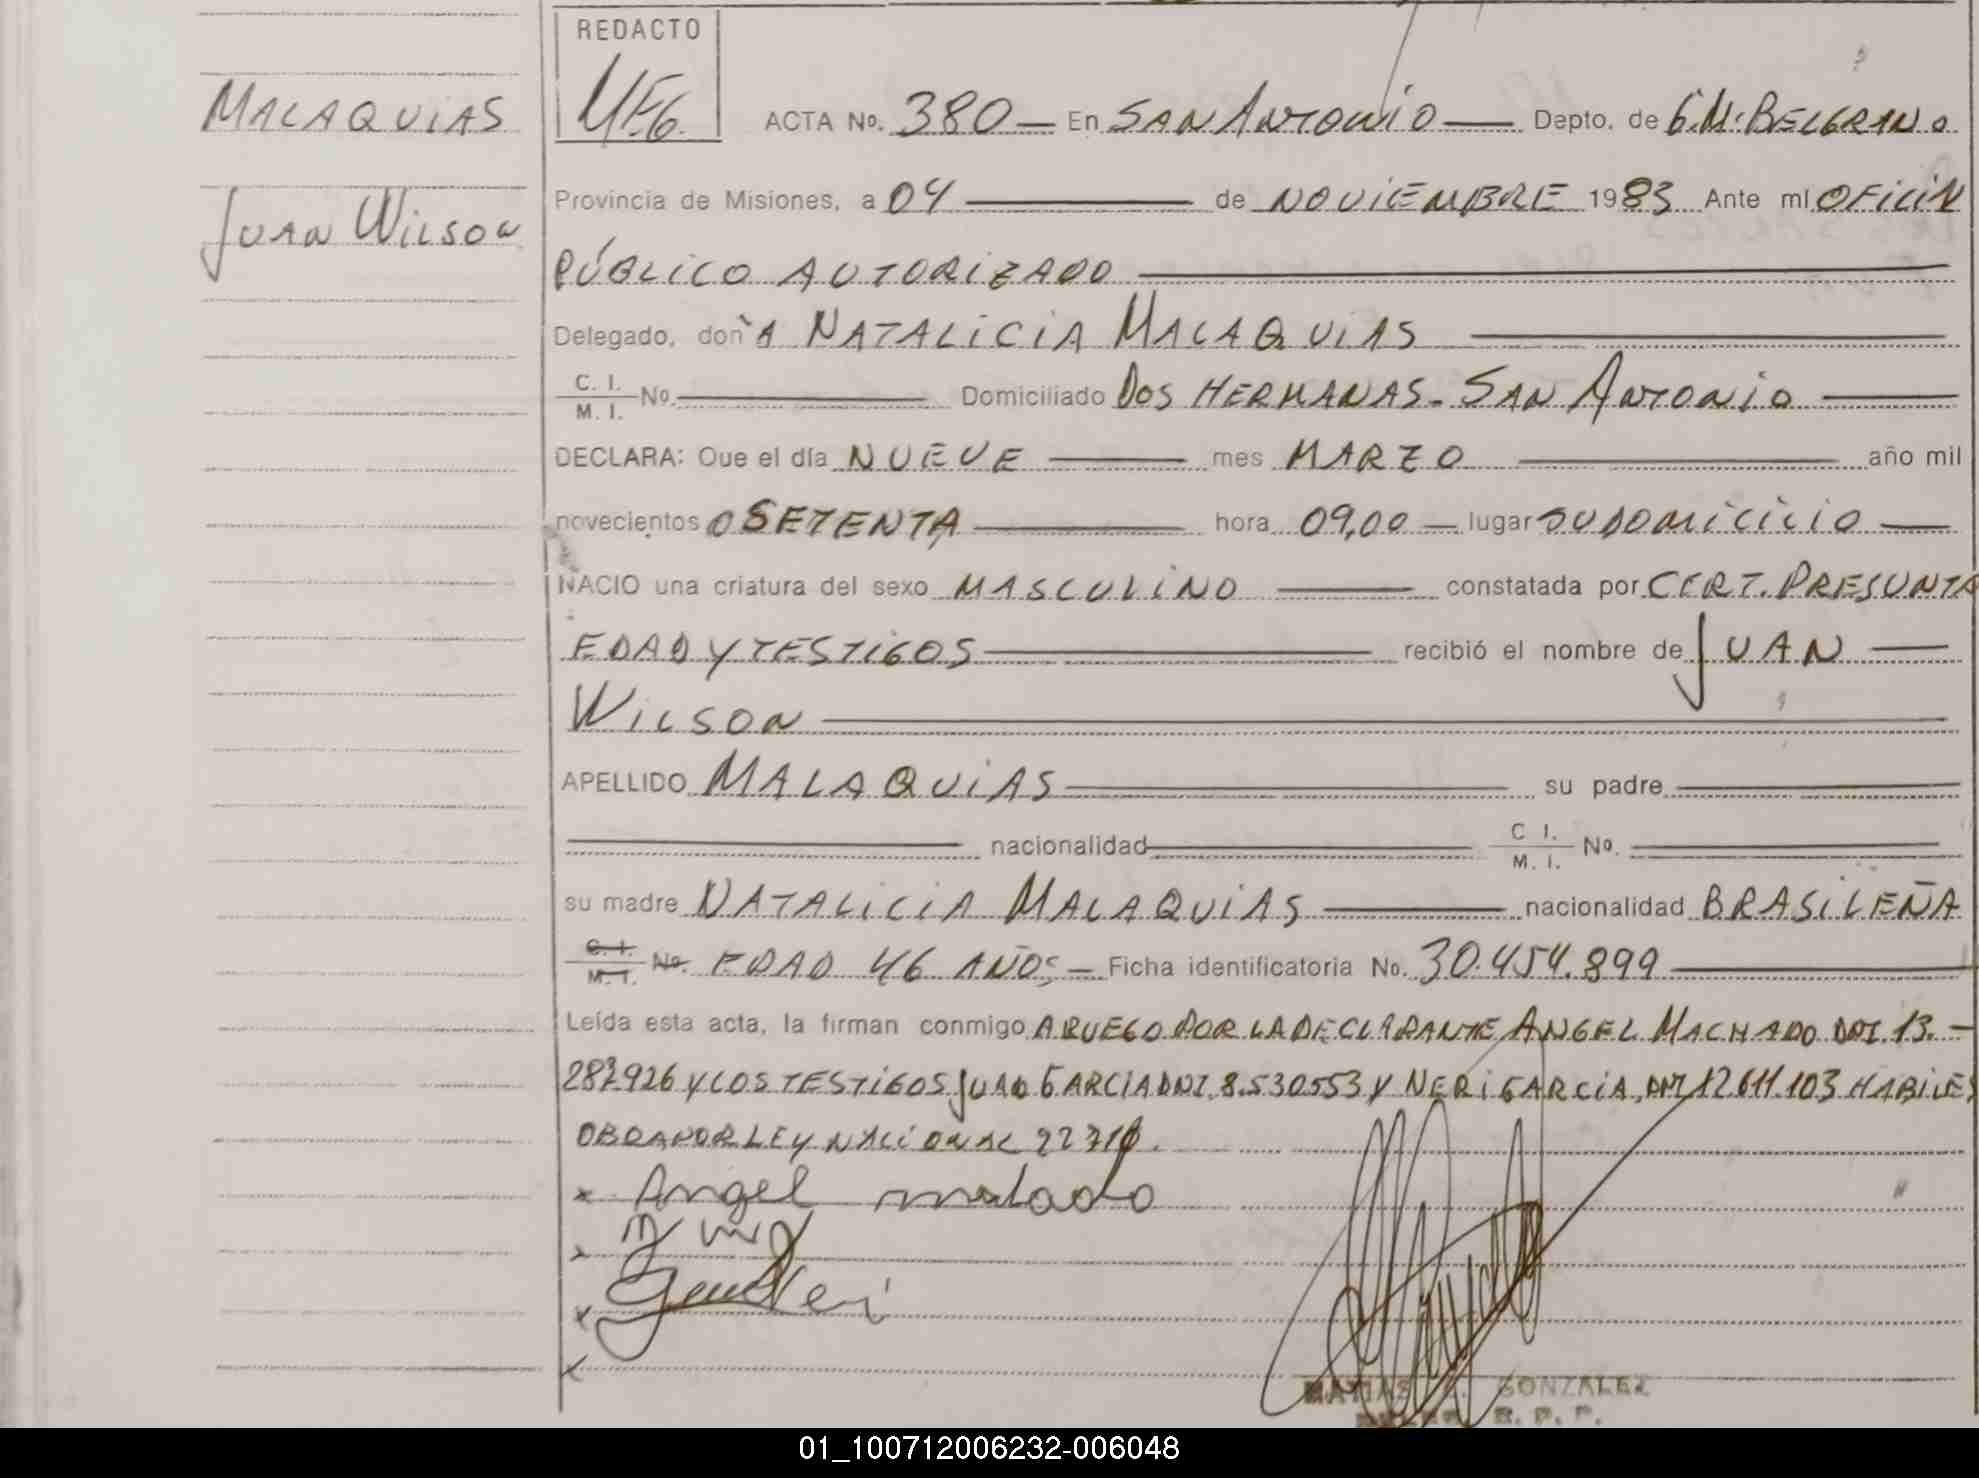 REDACTO
MALAQUIAS
ACTA No. 380 En SAN ANTONIO Depto. de G.M. BELGRANO
Provincia de Misiones, a 04 de NOVIEMBRE 1983 Ante mí OFICIN
JUAN WILSON
PÚBLICO AUTORIZADO
Delegado, doñA NATALICIA MALAQUIAS
C. I. / M. I. No. Domiciliado DOS HERMANAS - SAN ANTONIO
DECLARA: Que el día NUEVE mes MARZO año mil
novecientos SETENTA hora 09,00 lugar SU DOMICILIO
NACIO una criatura del sexo MASCULINO constatada por CERT. PRESUNTA
EDAD Y TESTIGOS recibió el nombre de JUAN
WILSON
APELLIDO MALAQUIAS su padre
nacionalidad C I. / M. I. No.
su madre NATALICIA MALAQUIAS nacionalidad BRASILEÑA
C. I. / M. I. No. EDAD 46 AÑOS Ficha identificatoria No. 30.454.899
Leída esta acta, la firman conmigo A RUEGO POR LA DECLARANTE ANGEL MACHADO DNI. 13.-
287926 Y LOS TESTIGOS JUAN GARCIA DNI. 8.530553 Y NERI GARCIA, DNI 12.611.103 HABILES
OBRA POR LEY NACIONAL
x Angel
x
x
x
MATIAS GONZALEZ
R. P. P.
01_100712006232-006048